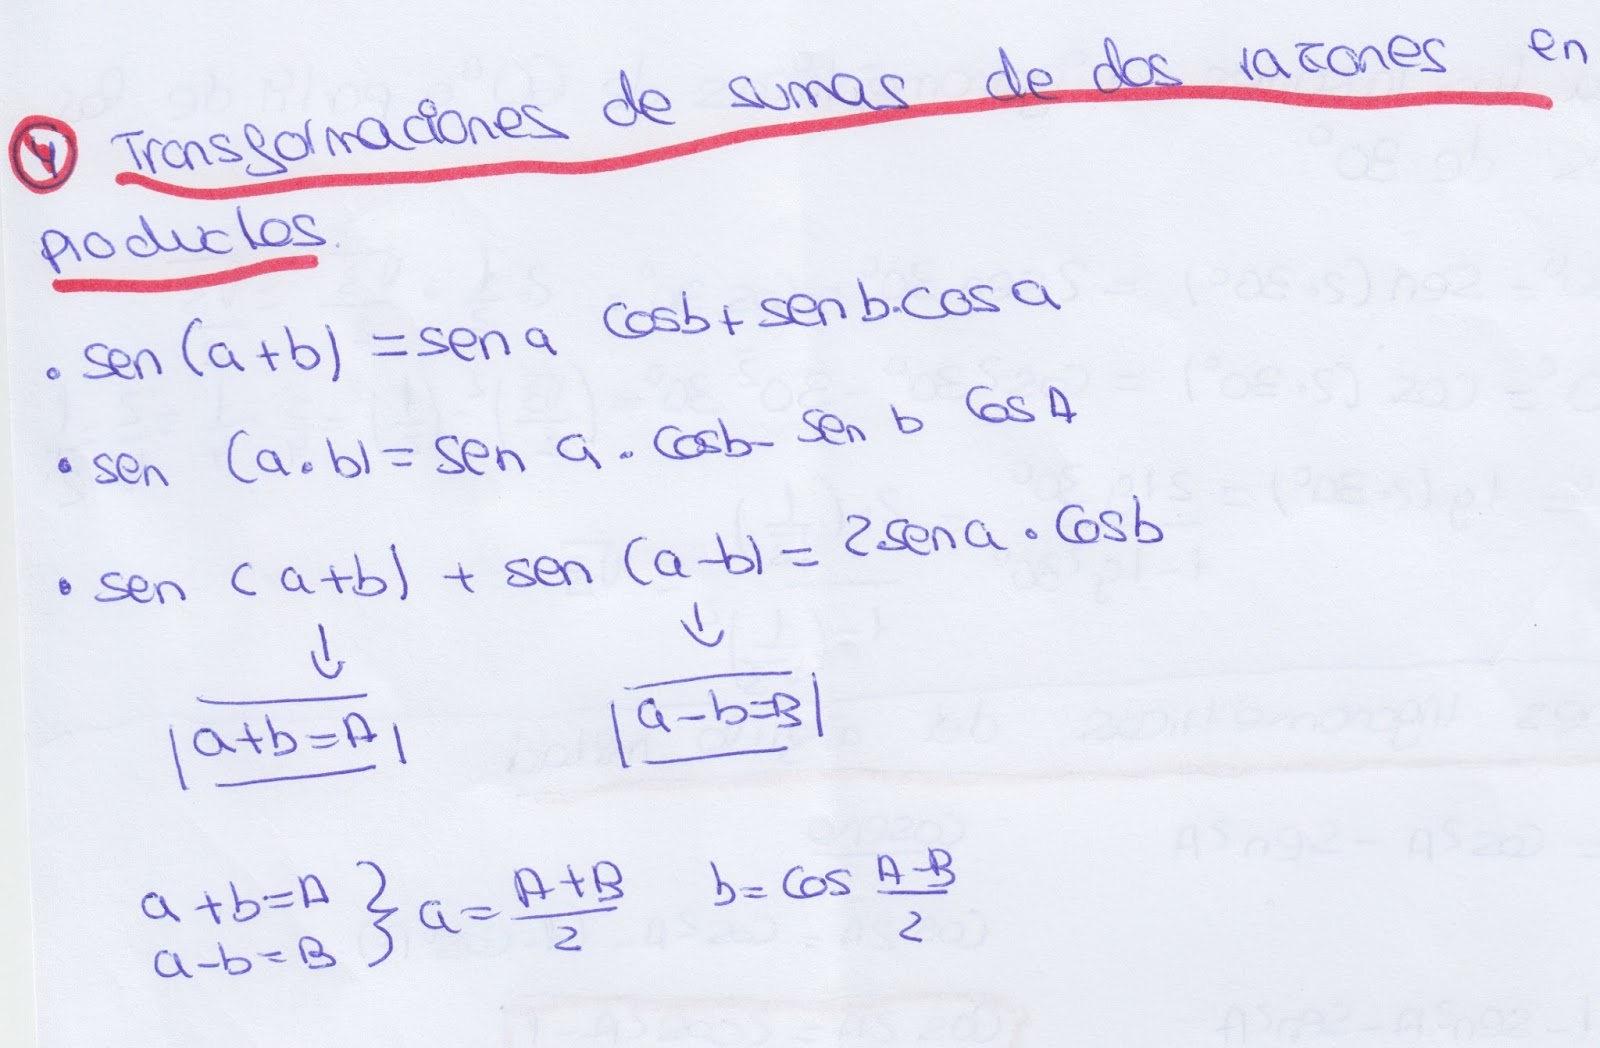 4 Transformaciones de sumas de dos razones en
productos.
• sen (a+b) = sen a cosb + sen b. cos a
• sen (a·b) = sen a. cosb - sen b cos A
• sen (a+b) + sen (a-b) = 2.sen a · cosb
↓ ↓
|a+b=A| |a-b=B|
a+b=A } a = A+B/2 b = cos A-B/2
a-b=B